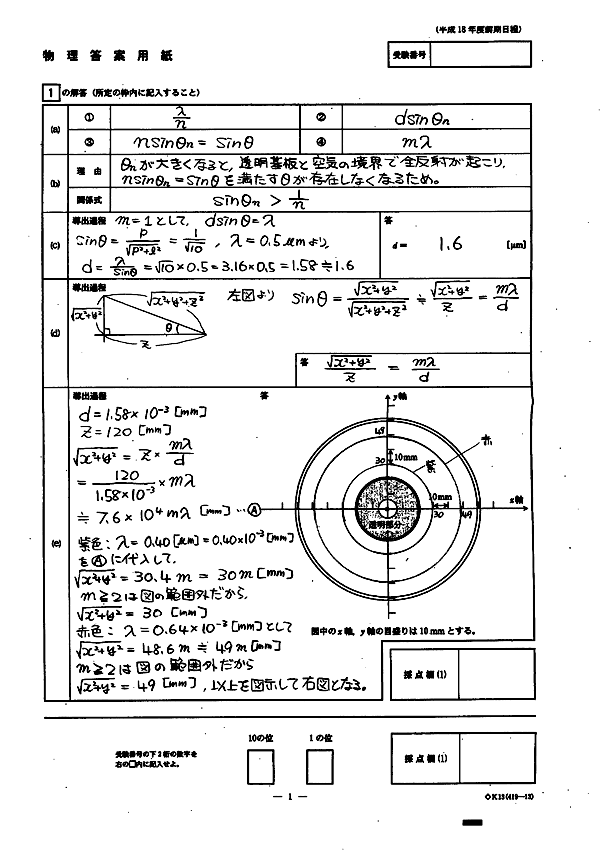 (平成18年度前期日程)
物理答案用紙
受験番号
1 の解答(所定の枠内に記入すること)
(a) ① λ/n ② dsinθn
③ nsinθn = sinθ ④ mλ
(b) 理由 θnが大きくなると,透明基板と空気の境界で全反射が起こり,
nsinθn = sinθ を満たすθが存在しなくなるため。
関係式 sinθn > 1/n
(c) 導出過程 m=1として, dsinθ=λ
sinθ = P/√(P²+l²) = 1/√10 , λ=0.5μmより,
d = λ/sinθ = √10×0.5 = 3.16×0.5 = 1.58≒1.6
答
d = 1.6 [μm]
(d) 導出過程
√(x²+y²+z²)
√(x²+y²)
θ
z
左図より sinθ = √(x²+y²)/√(x²+y²+z²) ≒ √(x²+y²)/z = mλ/d
答 √(x²+y²)/z = mλ/d
(e) 導出過程
d = 1.58×10⁻³ [mm]
z = 120 [mm]
√(x²+y²) = z × mλ/d
= 120/(1.58×10⁻³) × mλ
≒ 7.6×10⁴ mλ [mm] … Ⓐ
紫色:λ=0.40[μm]=0.40×10⁻³[mm]
をⒶに代入して,
√(x²+y²) = 30.4m = 30m [mm]
m≧2は図の範囲外だから,
√(x²+y²) = 30 [mm]
赤色:λ=0.64×10⁻³[mm]として
√(x²+y²) = 48.6m ≒ 49m [mm]
m≧2は図の範囲外だから
√(x²+y²) = 49 [mm] ,以上を図示して右図となる。
答
y軸
49
赤
30
10mm
紫
10mm
x軸
30
49
透明部分
図中のx軸,y軸の目盛りは10mmとする。
採点欄(1)
10の位
1の位
受験番号の下2桁の数字を
右の□内に記入せよ。
採点欄(1)
— 1 —
◇K13(419—13)